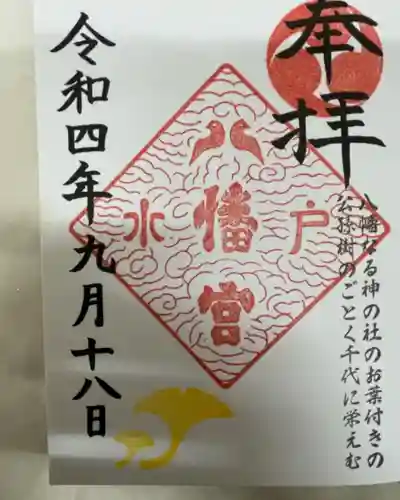 奉拝
八幡なる神の社のお葉付きの
公孫樹のごとく千代に栄えむ
八幡宮
水戸
令和四年九月十八日